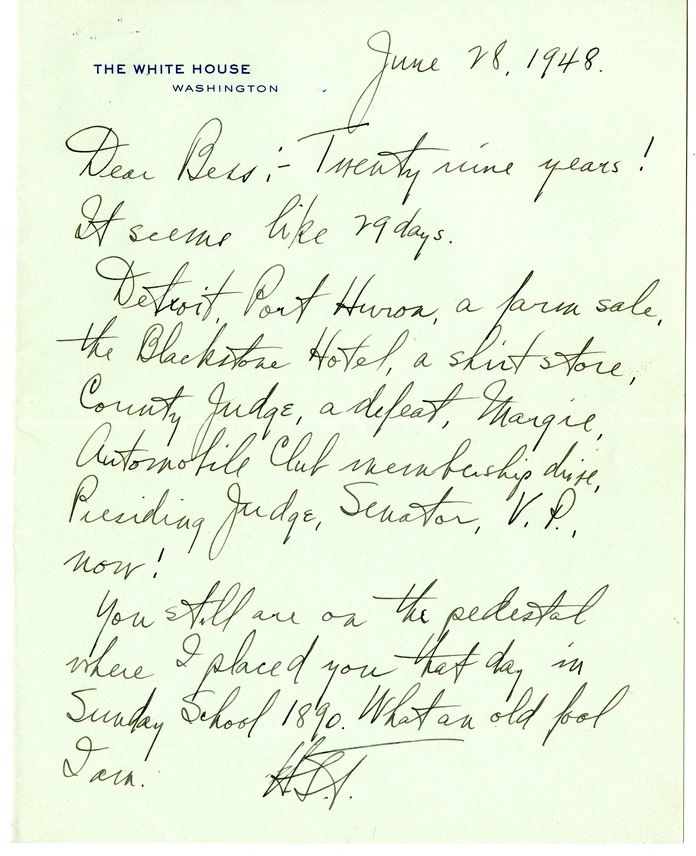 THE WHITE HOUSE
WASHINGTON
June 28, 1948.
Dear Bess:- Twenty nine years!
It seems like 29 days.
Detroit, Port Huron, a farm sale,
the Blackstone Hotel, a shirt store,
County Judge, a defeat, Margie,
Automobile Club membership drive,
Presiding Judge, Senator, V.P.,
now!
You still are on the pedestal
where I placed you that day in
Sunday School 1890. What an old fool
I am.
HST.